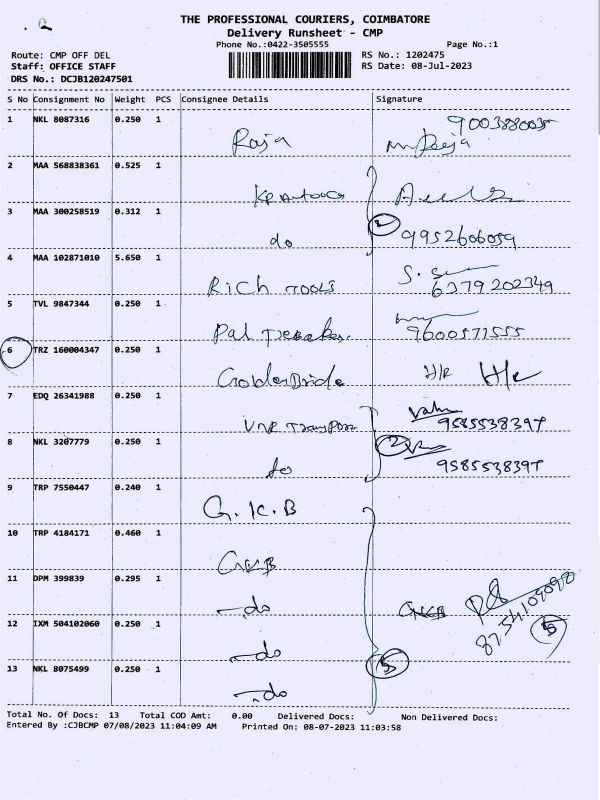 THE PROFESSIONAL COURIERS, COIMBATORE
Delivery Runsheet - CMP
Phone No.:0422-3505555 Page No.:1
Route: CMP OFF DEL RS No.: 1202475
Staff: OFFICE STAFF RS Date: 08-Jul-2023
DRS No.: DCJB120247501
S No Consignment No Weight PCS Consignee Details Signature
1 NKL 8087316 0.250 1 Raja 9003880035
2 MAA 568838361 0.525 1
3 MAA 300258519 0.312 1 do 2 9952606059
4 MAA 102871010 5.650 1 Rich Tools 6379202349
5 TVL 9847344 0.250 1 Pal 9600571555
6 TRZ 160004347 0.250 1 H/R H/R
7 EDQ 26341988 0.250 1 9585538397
8 NKL 3207779 0.250 1 do 2 9585538397
9 TRP 7550447 0.240 1 G.K.B
10 TRP 4184171 0.460 1 GKB
11 DPM 399839 0.295 1 do GKB
12 IXM 504102060 0.250 1 do 5
13 NKL 8075499 0.250 1 do 5
Total No. Of Docs: 13 Total COD Amt: 0.00 Delivered Docs: Non Delivered Docs:
Entered By :CJBCMP 07/08/2023 11:04:09 AM Printed On: 08-07-2023 11:03:58